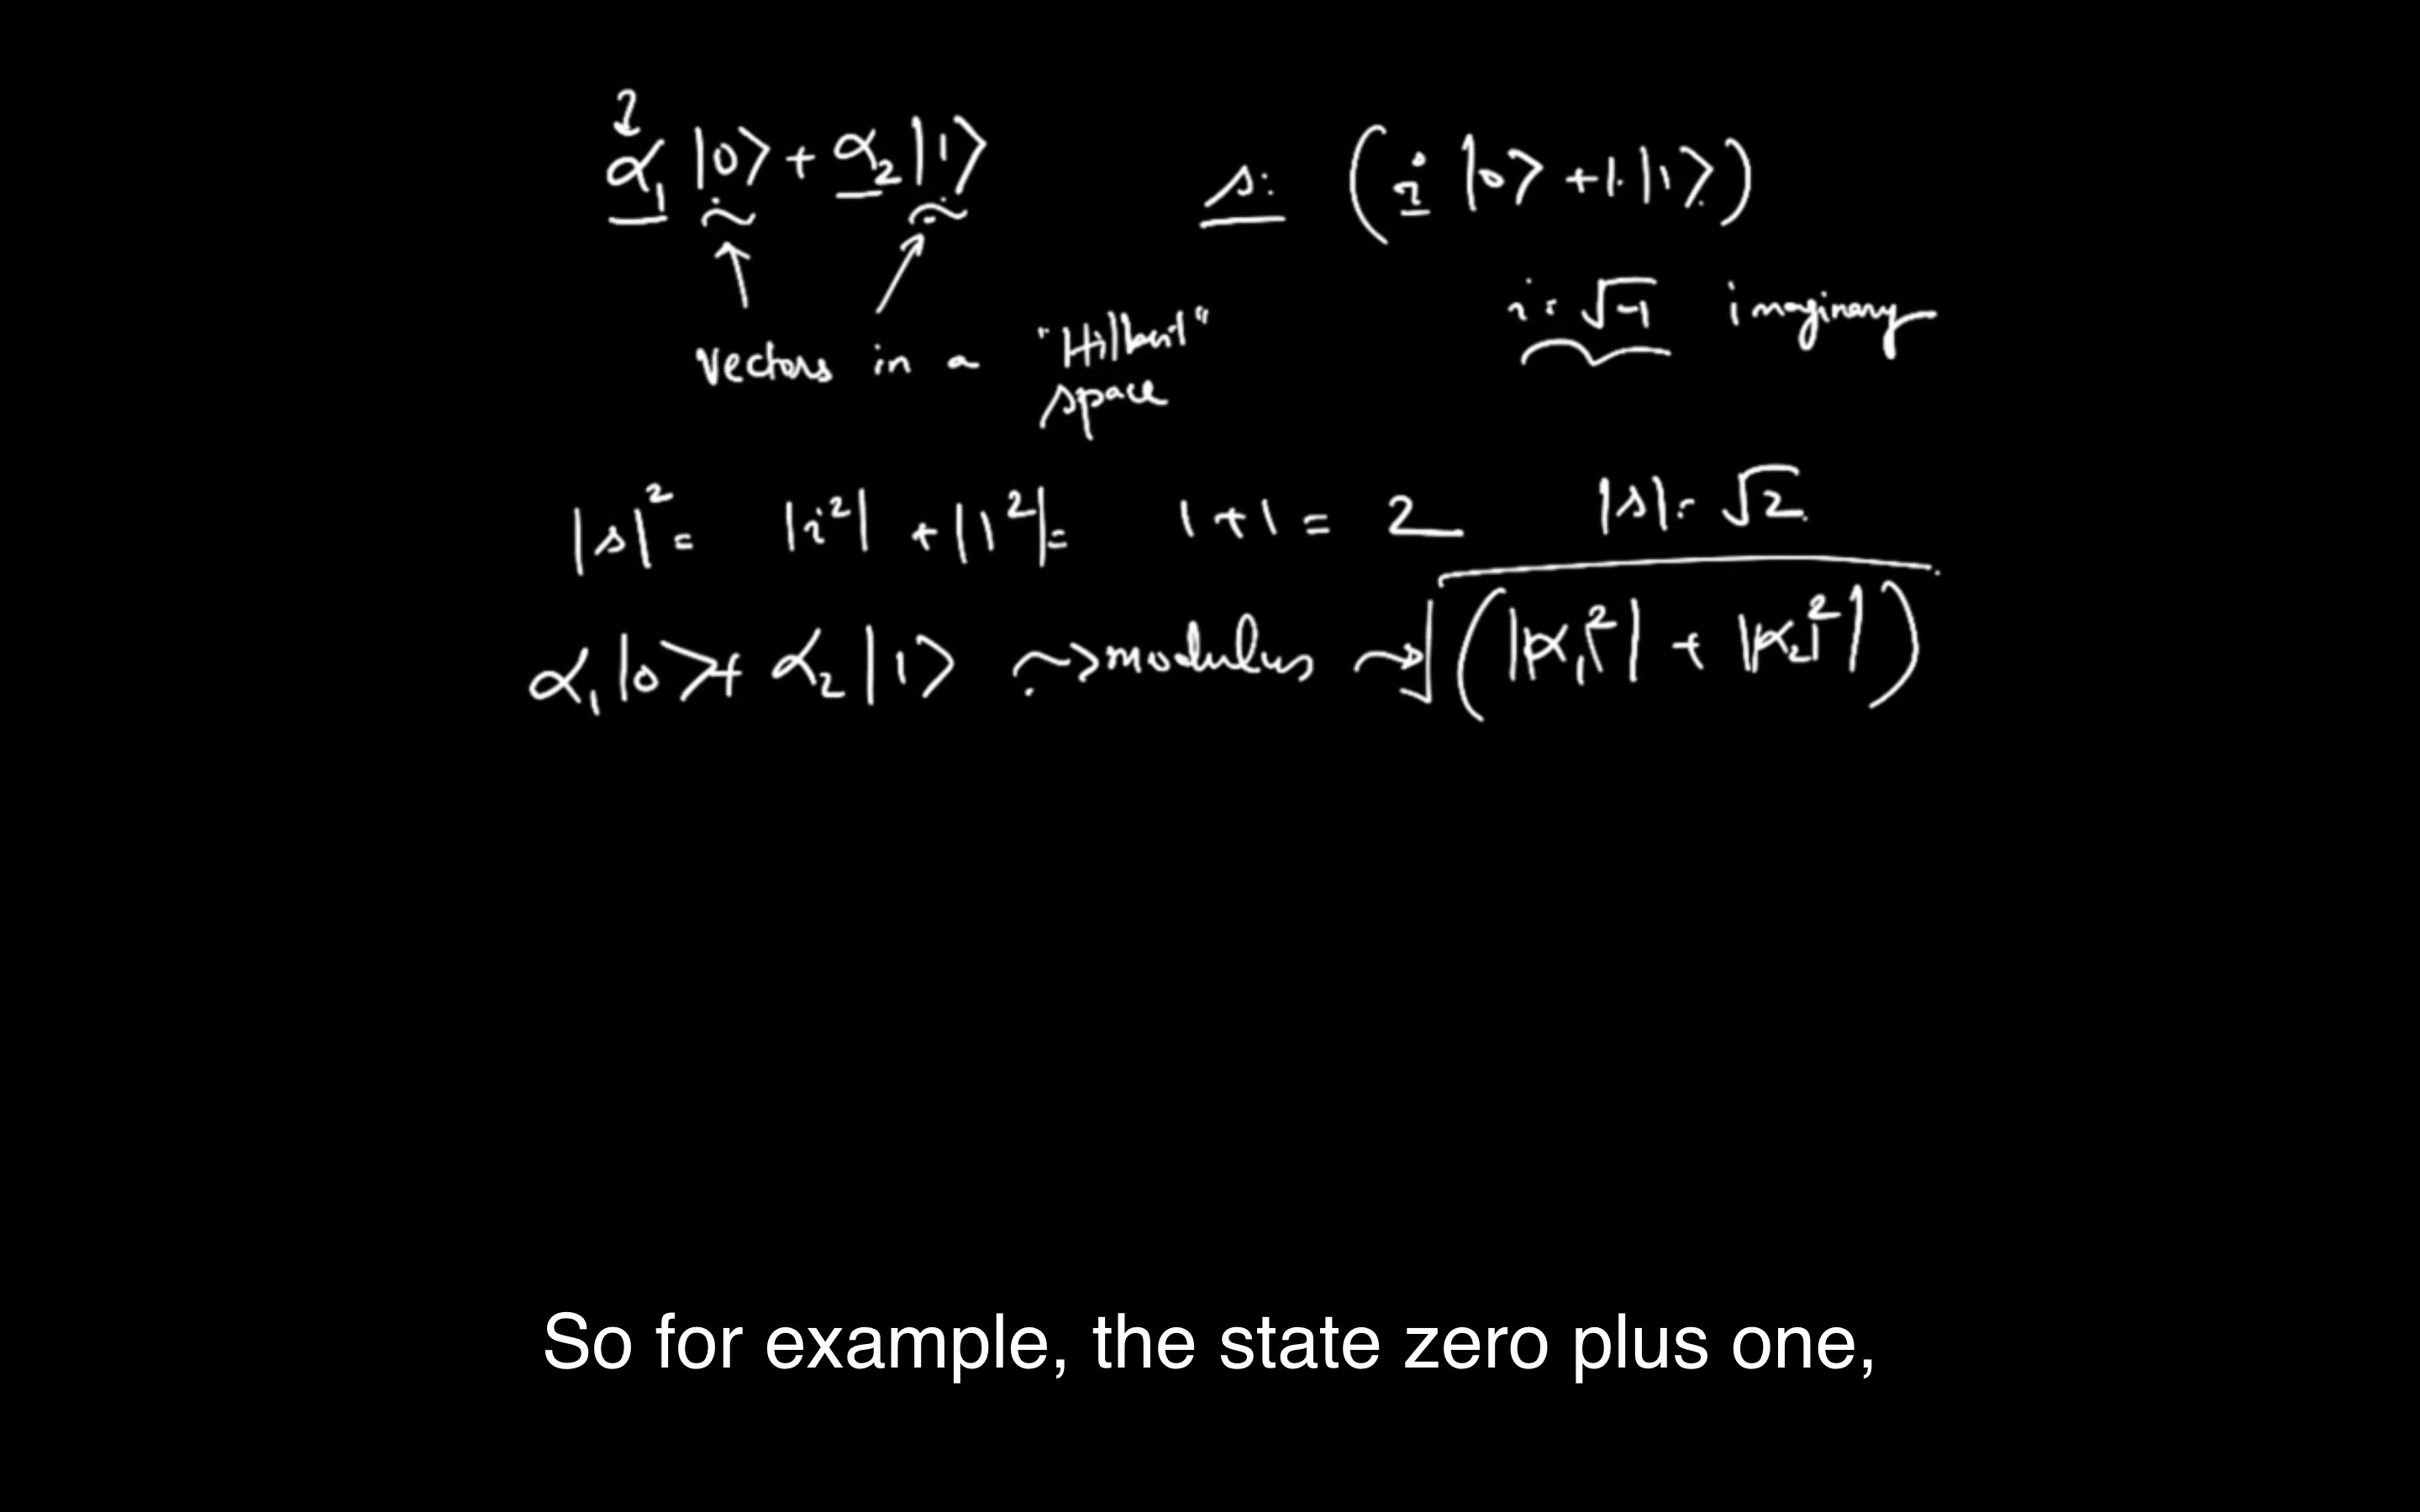 α₁|0⟩ + α₂|1⟩
s: (i|0⟩ + 1·|1⟩)
vectors in a "Hilbert" space
i = √-1 imaginary
|s|² = |i²| + |1²| = 1 + 1 = 2 |s| = √2
α₁|0⟩ + α₂|1⟩ ⇝ modulus ⇝ √(|α₁²| + |α₂²|)
So for example, the state zero plus one,